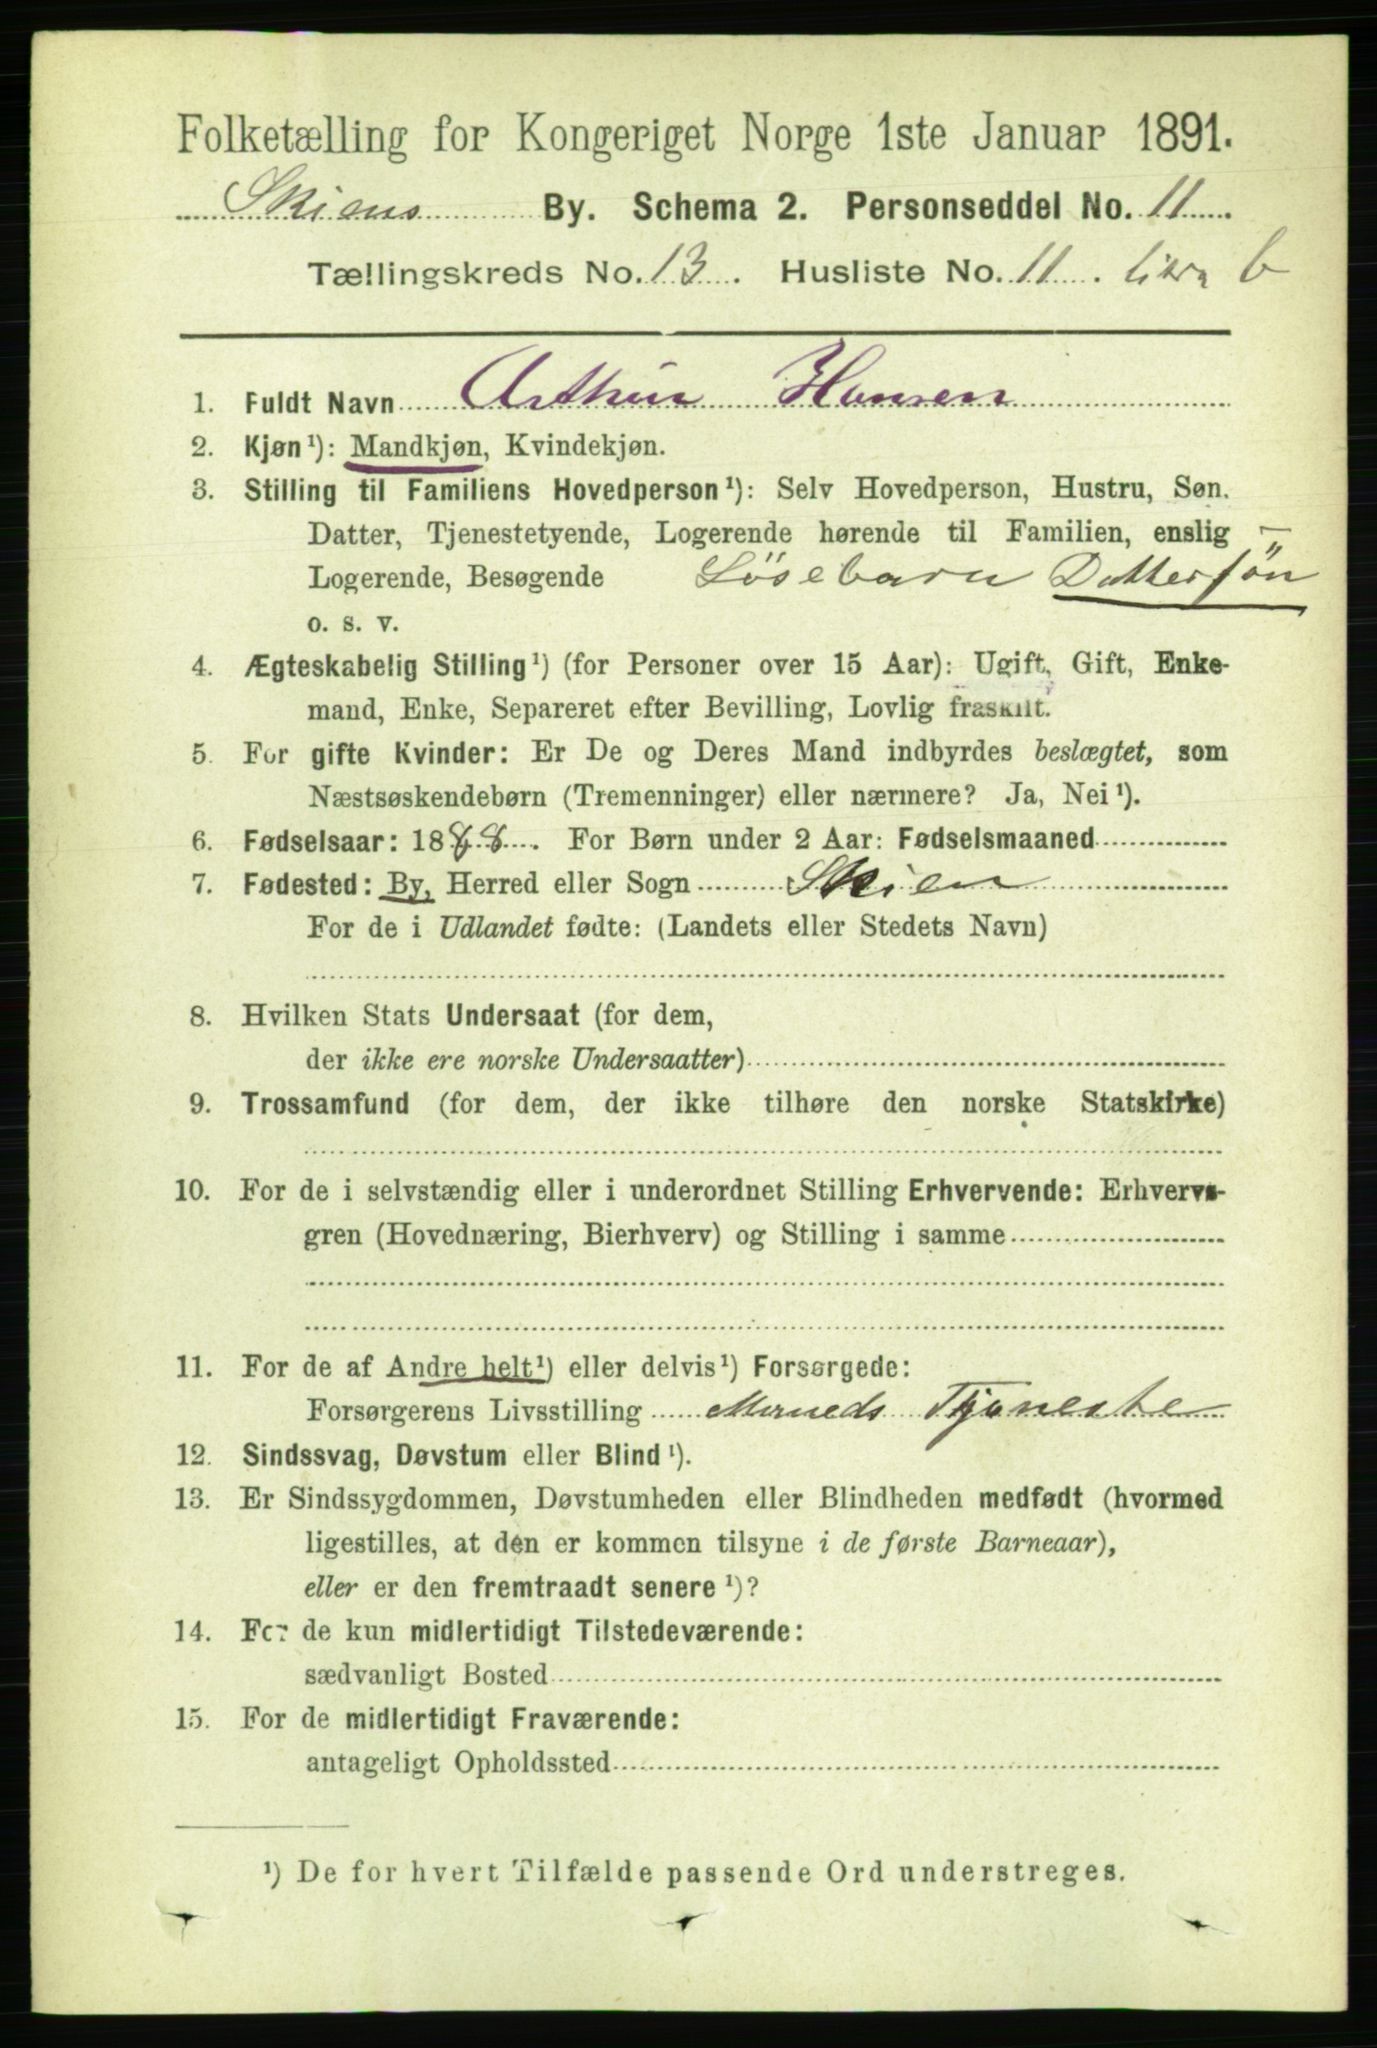 Folketælling for Kongeriget Norge 1ste Januar 1891.
Skiens By. Schema 2. Personseddel No. 11.
Tællingskreds No. 13. Husliste No. 11. litra b
1. Fuldt Navn Arthur Hansen
2. Kjøn¹): Mandkjøn, Kvindekjøn.
3. Stilling til Familiens Hovedperson¹): Selv Hovedperson, Hustru, Søn.
Datter, Tjenestetyende, Logerende hørende til Familien, enslig
Logerende, Besøgende Løsebarn Dattersøn
o. s. v.
4. Ægteskabelig Stilling¹) (for Personer over 15 Aar): Ugift, Gift, Enke-
mand, Enke, Separeret efter Bevilling, Lovlig fraskilt.
5. For gifte Kvinder: Er De og Deres Mand indbyrdes beslægtet, som
Næstsøskendebørn (Tremenninger) eller nærmere? Ja, Nei¹).
6. Fødselsaar: 1888. For Børn under 2 Aar: Fødselsmaaned
7. Fødested: By, Herred eller Sogn Skien
For de i Udlandet fødte: (Landets eller Stedets Navn)
8. Hvilken Stats Undersaat (for dem,
der ikke ere norske Undersaatter)
9. Trossamfund (for dem, der ikke tilhøre den norske Statskirke)
10. For de i selvstændig eller i underordnet Stilling Erhvervende: Erhvervs-
gren (Hovednæring, Bierhverv) og Stilling i samme
11. For de af Andre helt¹) eller delvis¹) Forsørgede:
Forsørgerens Livsstilling Tjeneste
12. Sindssvag, Døvstum eller Blind¹).
13. Er Sindssygdommen, Døvstumheden eller Blindheden medfødt (hvormed
ligestilles, at den er kommen tilsyne i de første Barneaar),
eller er den fremtraadt senere¹)?
14. For de kun midlertidigt Tilstedeværende:
sædvanligt Bosted
15. For de midlertidigt Fraværende:
antageligt Opholdssted
¹) De for hvert Tilfælde passende Ord understreges.